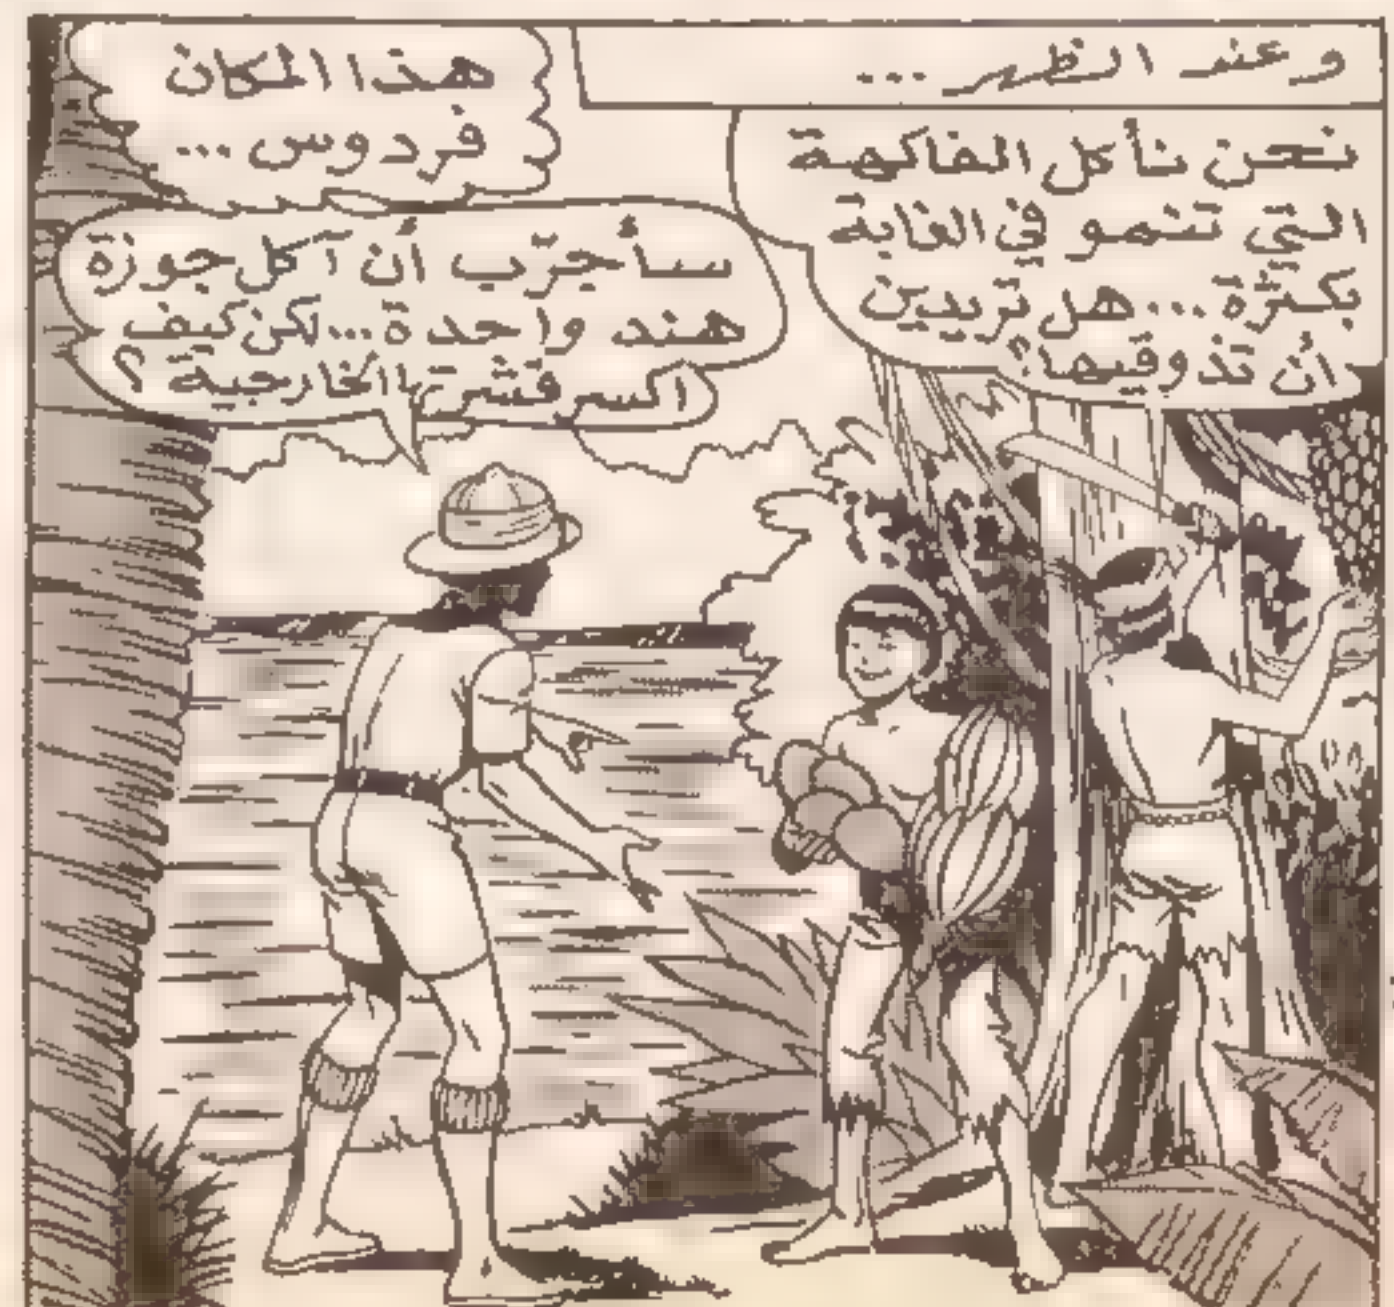 وعند الظهر...
نحن نأكل الفاكهة
التي تنمو في الغابة
بكثرة... هل تريدين
أن تذوقيها؟
هذا المكان
فردوس...
سأجرّب أن آكل جوزة
هند واحدة... لكن كيف
اكسر قشرتها الخارجية؟